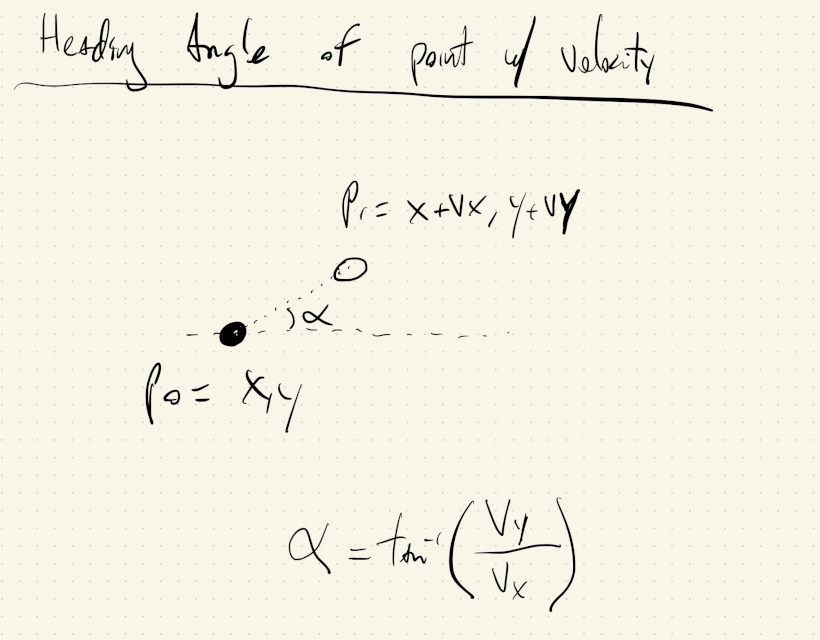 Heading Angle of point w/ velocity
P₁= x+Vx, y+Vy
α
P0= x,y
α = tan⁻¹(Vy/Vx)